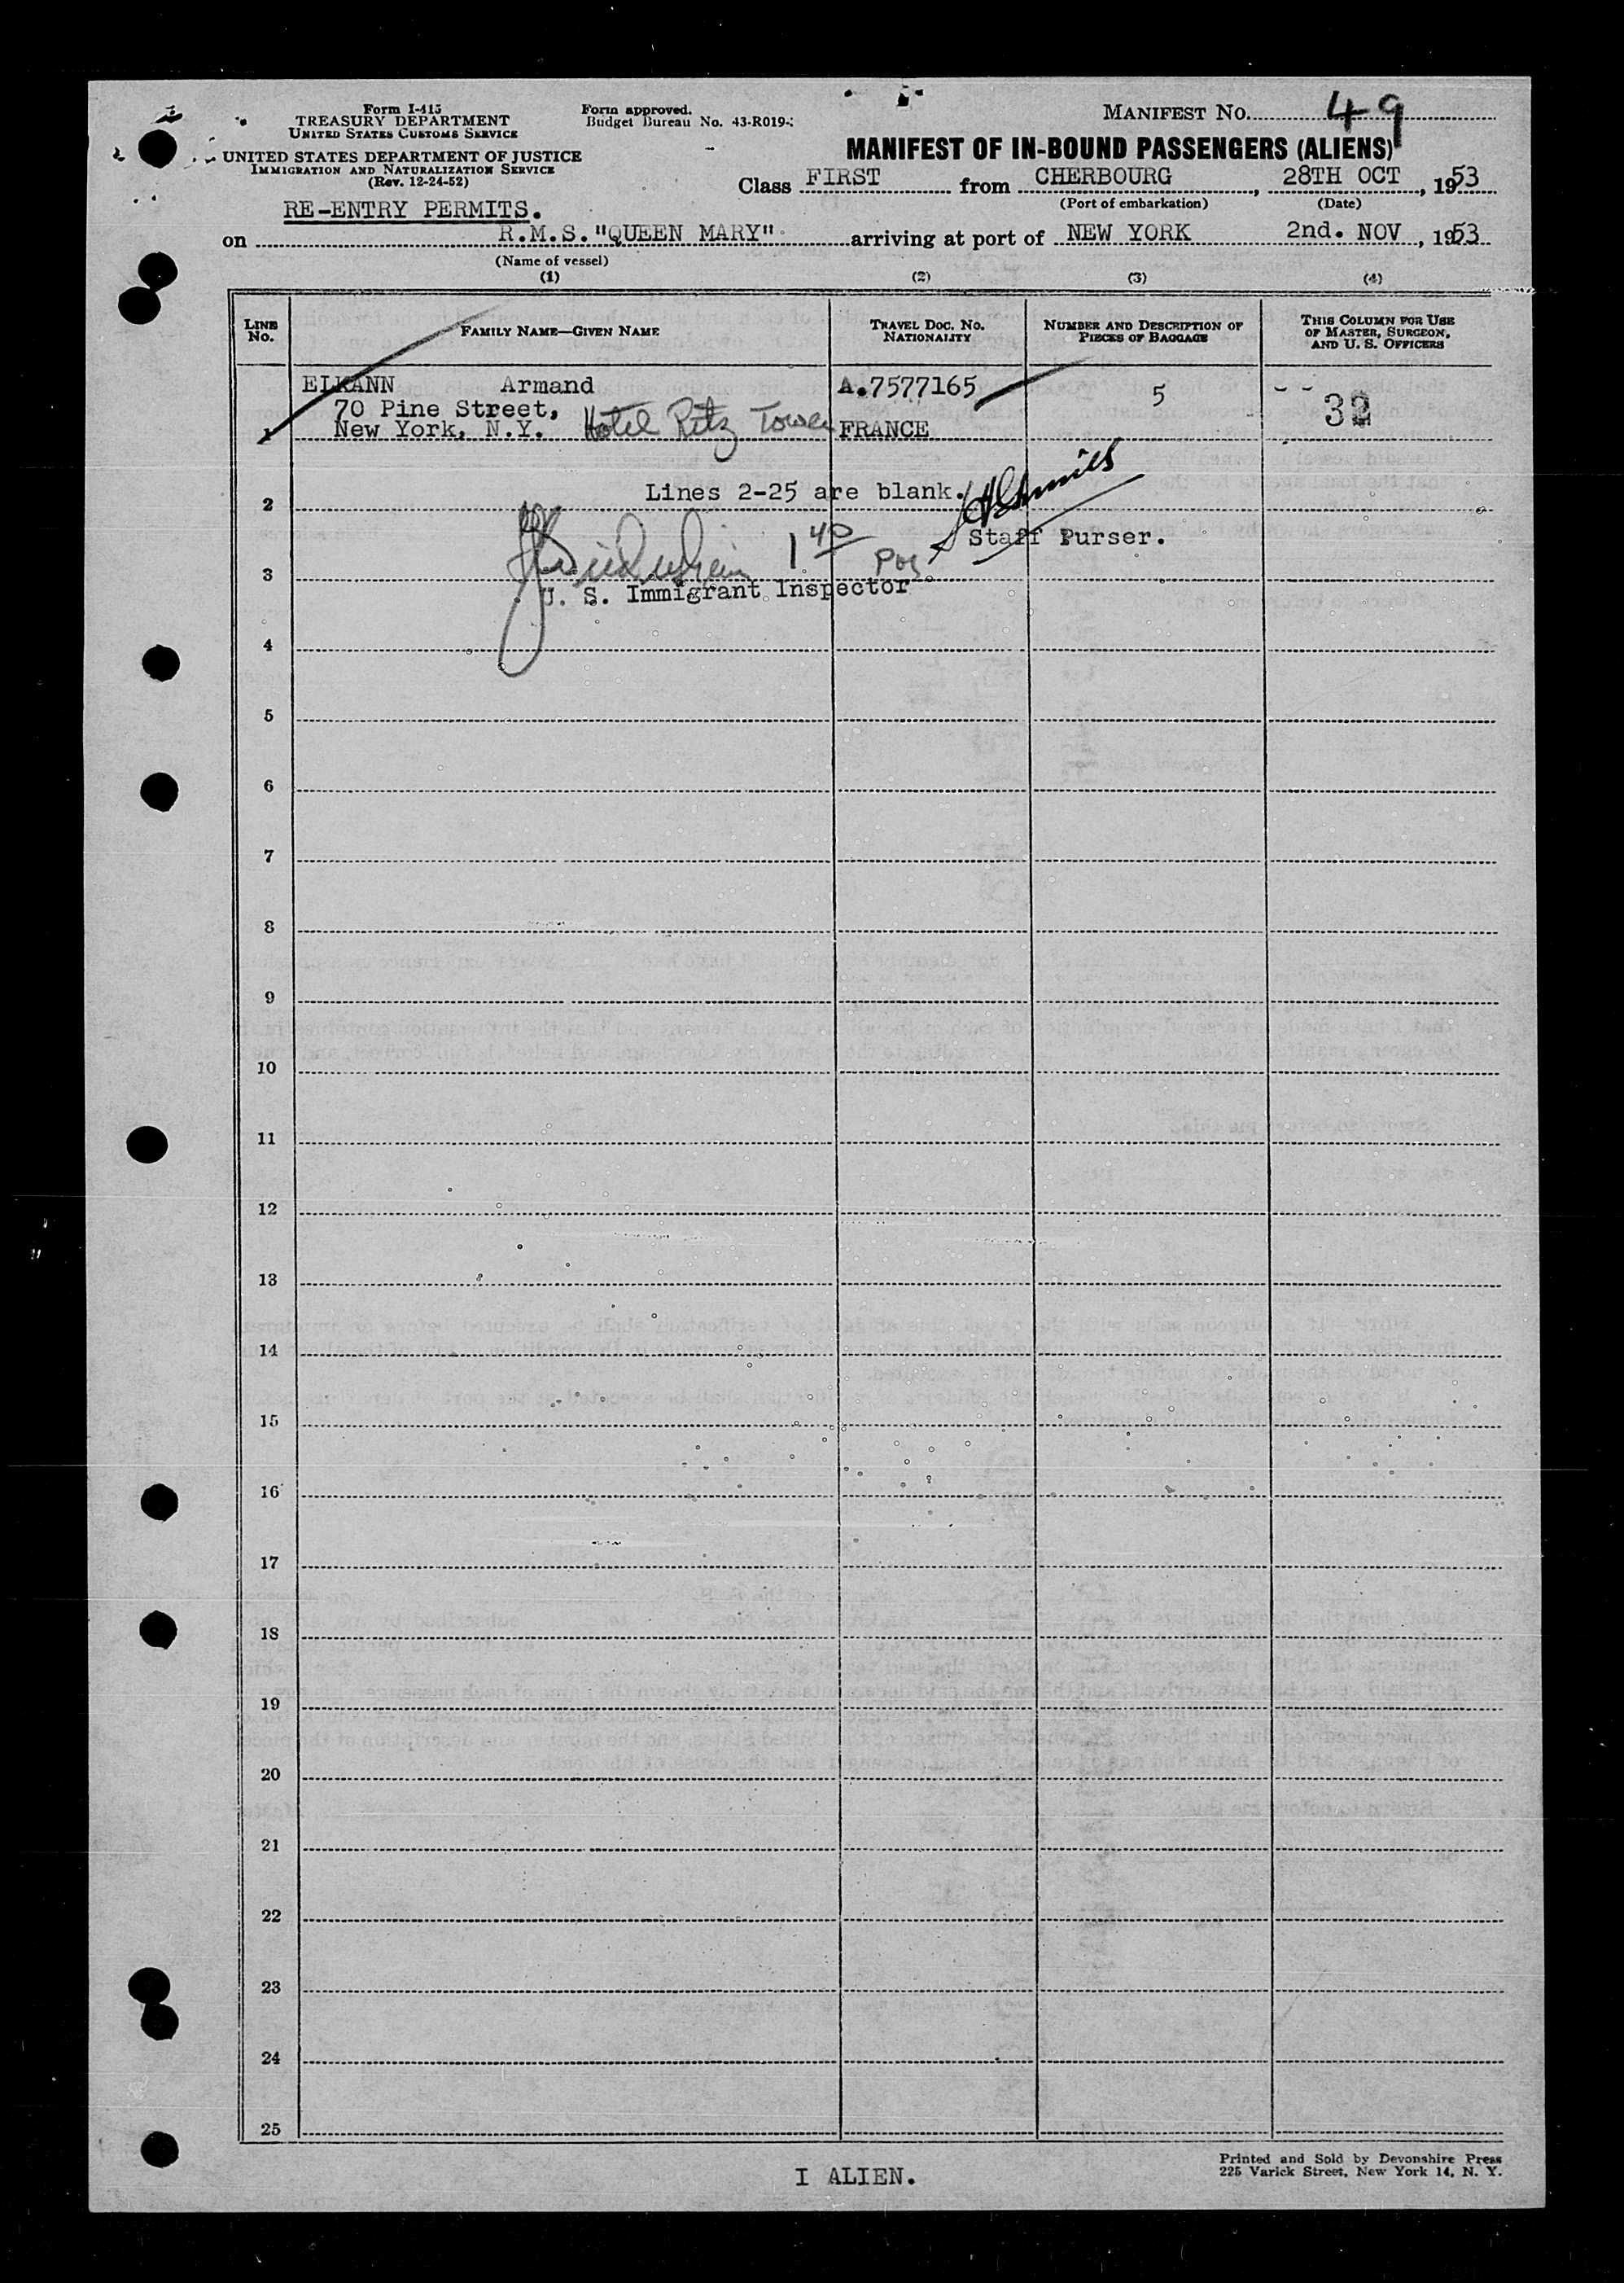 Form I-415
TREASURY DEPARTMENT
UNITED STATES CUSTOMS SERVICE
UNITED STATES DEPARTMENT OF JUSTICE
IMMIGRATION AND NATURALIZATION SERVICE
(Rev. 12-24-52)
Form approved.
Budget Bureau No. 43-R019-
MANIFEST NO. 49
MANIFEST OF IN-BOUND PASSENGERS (ALIENS)
Class FIRST from CHERBOURG, 28TH OCT, 1953
(Port of embarkation) (Date)
RE-ENTRY PERMITS.
on R.M.S."QUEEN MARY" arriving at port of NEW YORK 2nd. NOV, 1953
(Name of vessel)
(1) (2) (3) (4)
LINE NO. FAMILY NAME—GIVEN NAME TRAVEL DOC. NO. NATIONALITY NUMBER AND DESCRIPTION OF PIECES OF BAGGAGE THIS COLUMN FOR USE OF MASTER, SURGEON, AND U. S. OFFICERS
ELKANN Armand A.7577165 5 32
70 Pine Street,
1 New York, N.Y. Hotel Ritz Tower FRANCE
Lines 2-25 are blank.
2
Staff Purser.
1 40
3
U. S. Immigrant Inspector
4
5
6
7
8
9
10
11
12
13
14
15
16
17
18
19
20
21
22
23
24
25
I ALIEN.
Printed and Sold by Devonshire Press
225 Varick Street, New York 14, N. Y.